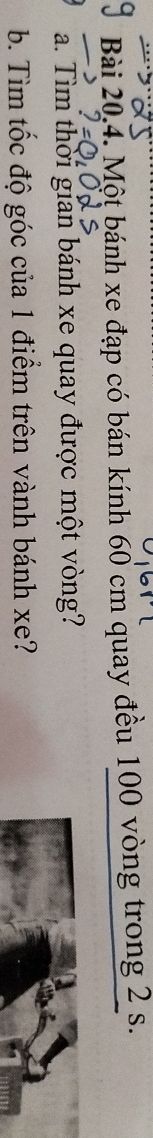 -> 2s
0,6m
Bài 20.4. Một bánh xe đạp có bán kính 60 cm quay đều 100 vòng trong 2 s.
-> ? = 0,02s
a. Tìm thời gian bánh xe quay được một vòng?
b. Tìm tốc độ góc của 1 điểm trên vành bánh xe?